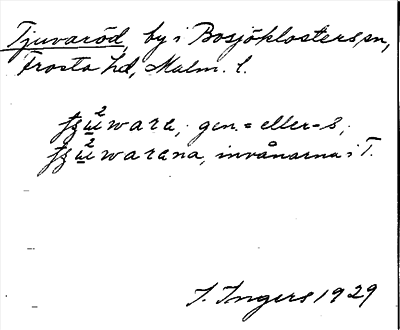 Tjuvaröd, by i Bosjöklosters sn,
Frosta hd, Malm. l.
wara, gen. = eller -s;
warana, invånarna i T.
I. Ingers 1929